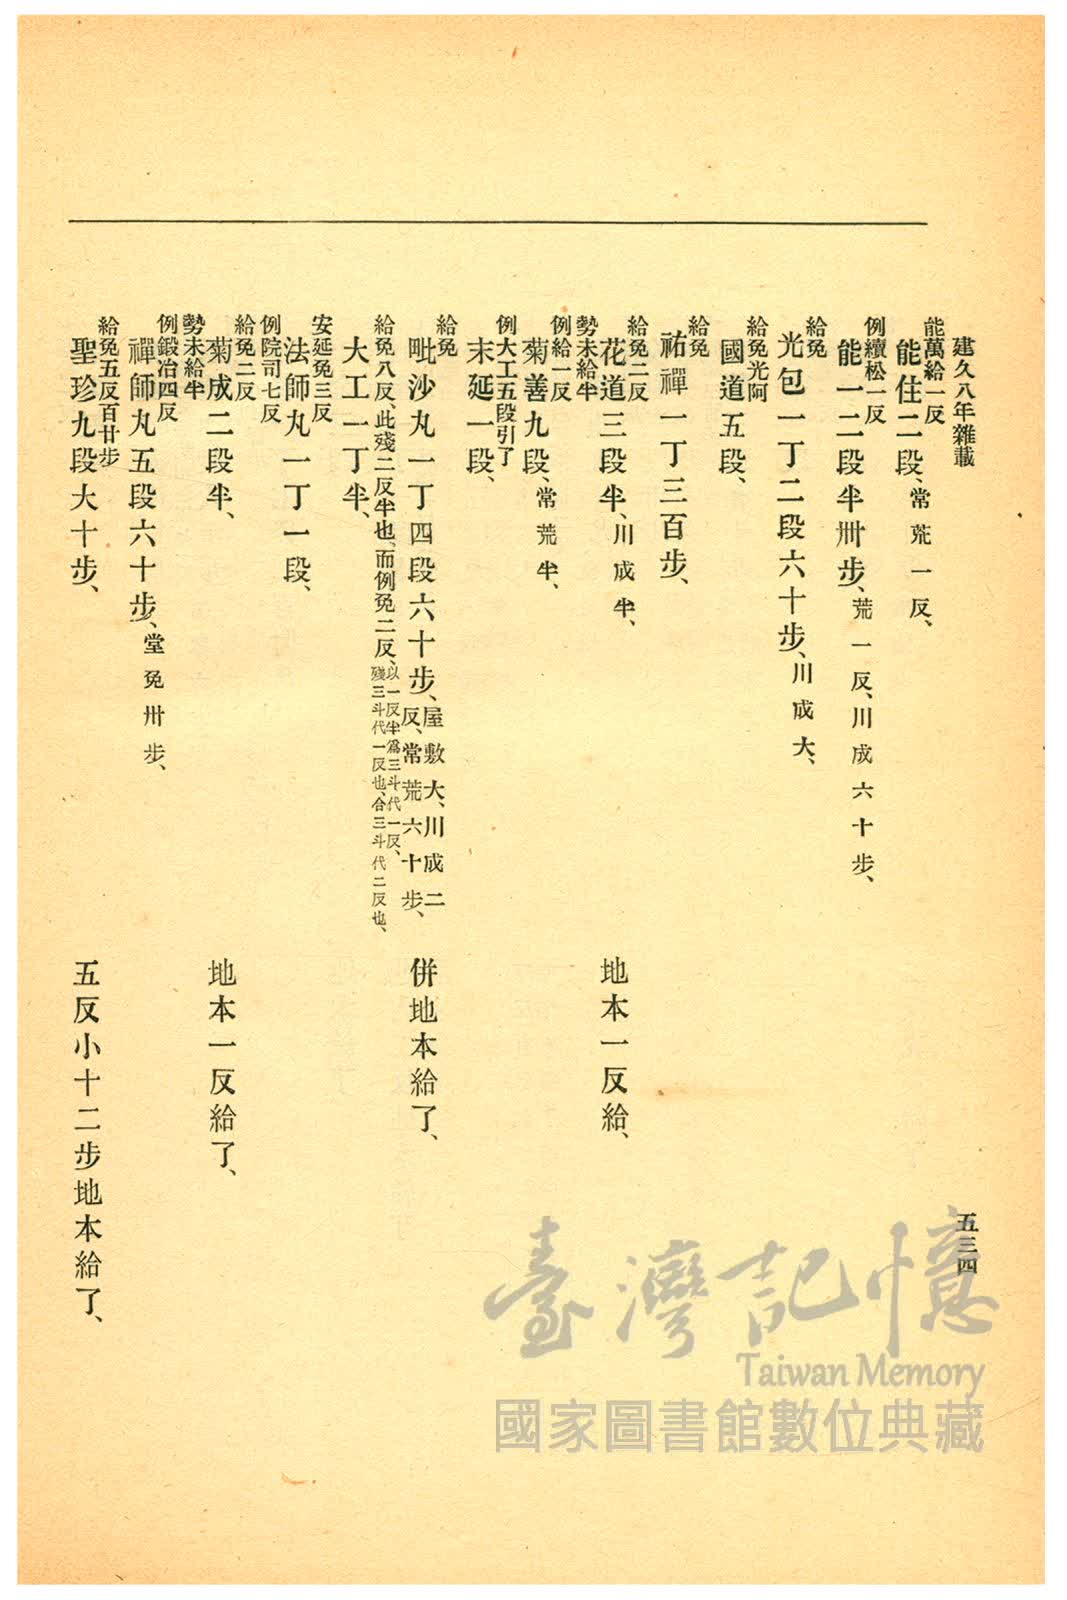 建久八年雜載
五三四
能萬給一反
能住二段、常荒一反、
例續松一反
能一二段半卅步、荒一反、川成六十步、
給免
光包一丁二段六十步、川成大、
給免光阿
國道五段、
給免
祐禪一丁三百步、
給免二反
花道三段半、川成半、
地本一反給、
勢未給半
例給一反
菊善九段、常荒半、
例大工五段引了
末延一段、
給免
毗沙丸一丁四段六十步、屋敷大、川成二反、常荒六十步、
併地本給了、
給免八反、此殘二反半也、而例免二反、以一反半爲三斗代一反、殘三斗代一反也、合三斗代二反也、
大工一丁半、
安延免三反
法師丸一丁一段、
例院司七反
給免二反
菊成二段半、
地本一反給了、
勢未給半
例鍛冶四反
禪師丸五段六十步、堂免卅步、
給免五反百廿步
聖珍九段大十步、
五反小十二步地本給了、
臺灣記憶
Taiwan Memory
國家圖書館數位典藏